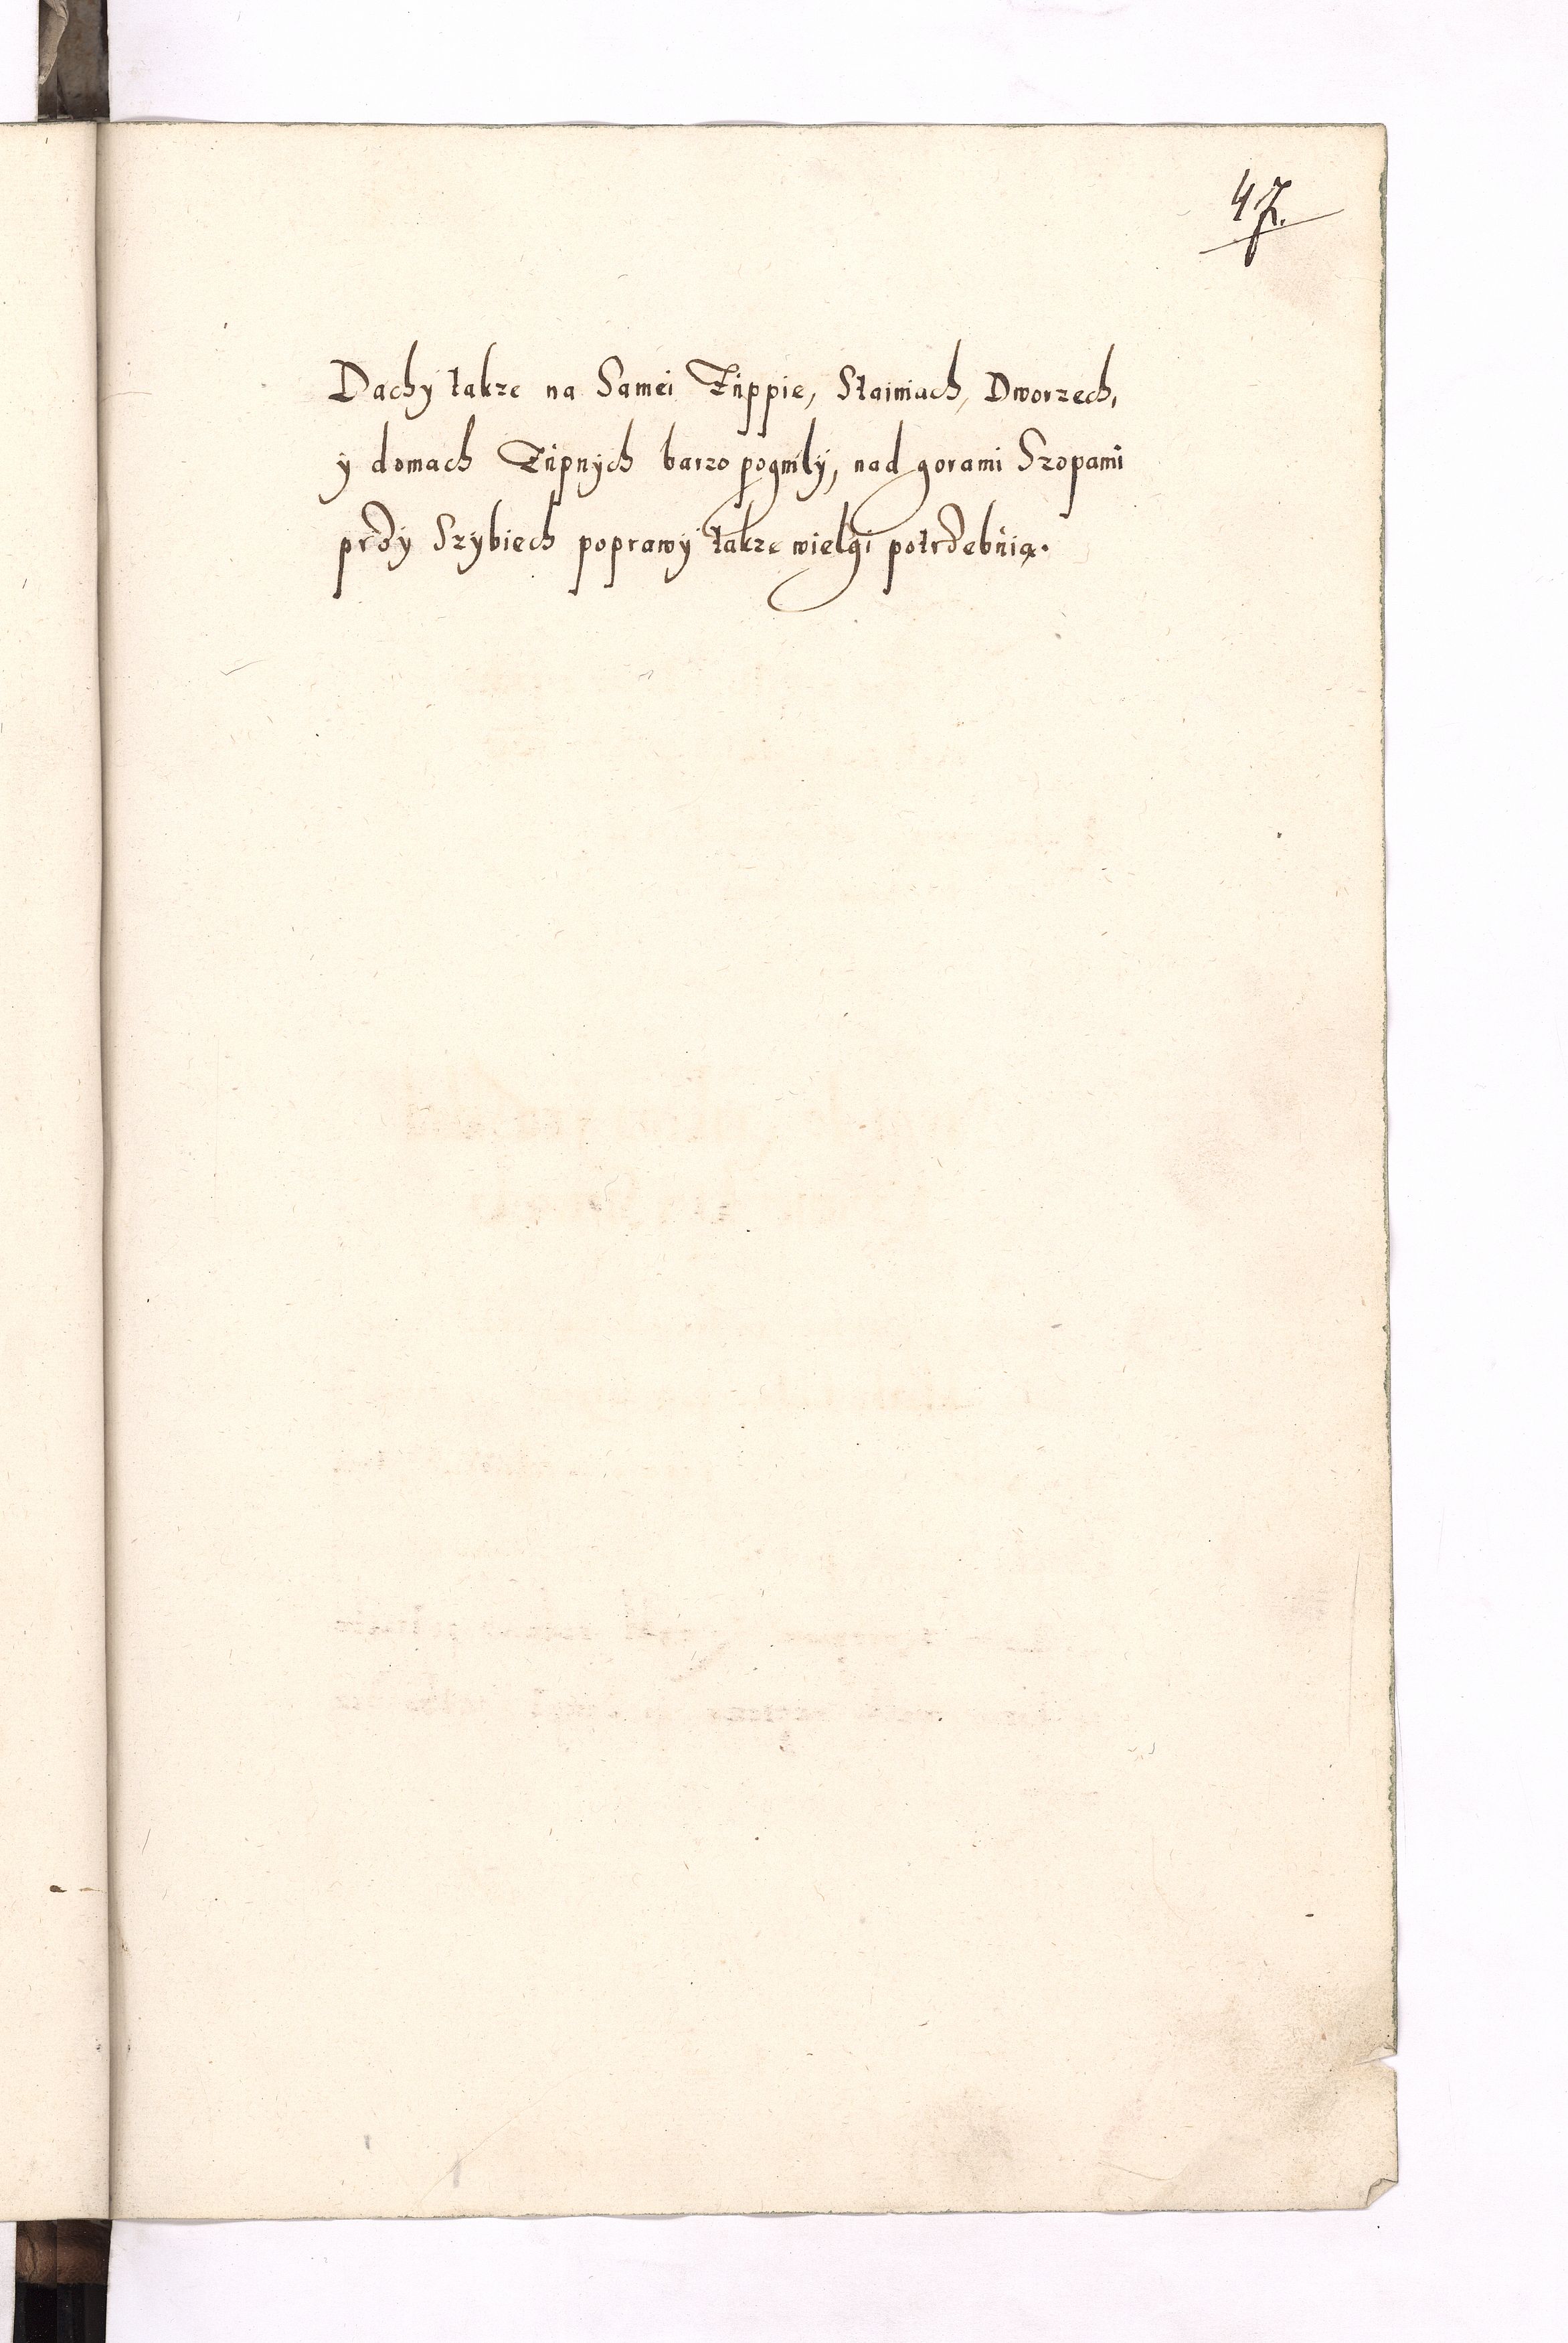 47.
Dachy takze na Samei Zuppie, Stainiach, Dworzech,
y domach Zupnych barzo pogniły, nad gorami Szopami
przy Szybiech poprawy takze wielgi potrzebuią.